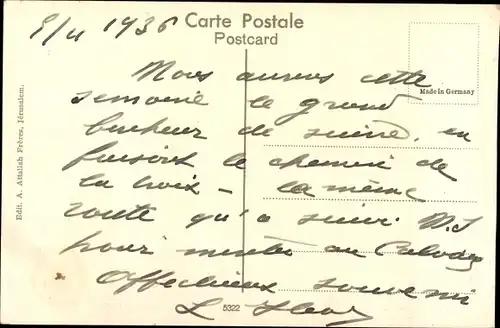 5/4 1936
Carte Postale
Postcard
Made in Germany
Edit. A. Attallah Frères, Jérusalem.
Nous aurons cette
semaine le grand
bonheur de suivre, en
faisant le chemin de
la Croix - la même
route qu'a suivi N.S
pour monter au Calvaire
Affectueux souvenir
L.
5322